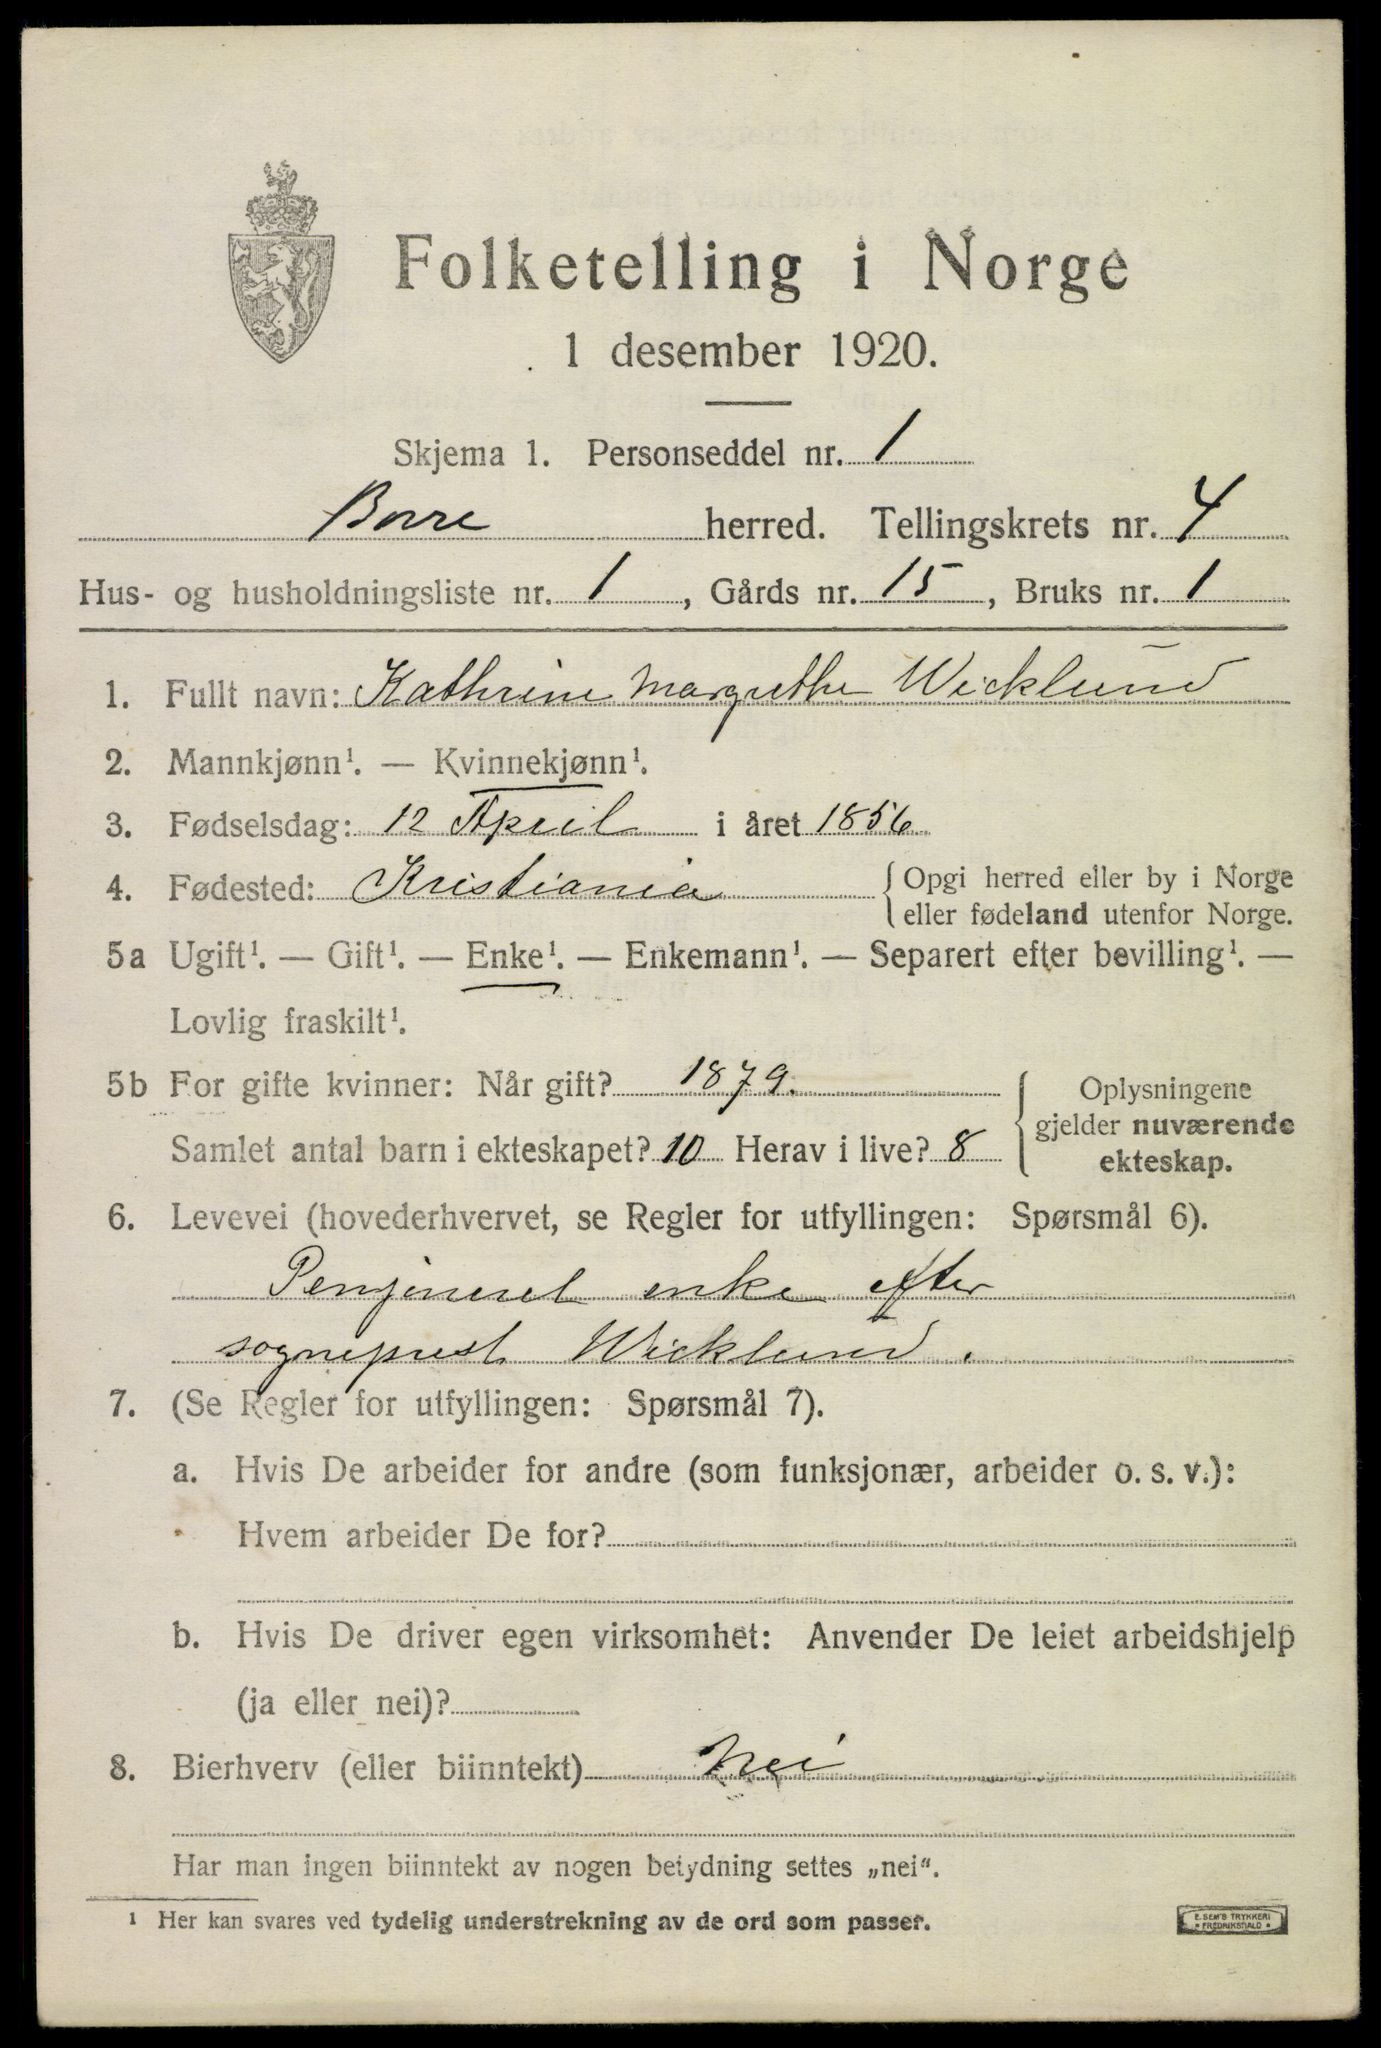 Folketelling i Norge
1 desember 1920.
Skjema 1. Personseddel nr. 1
Borre herred. Tellingskrets nr. 4
Hus- og husholdningsliste nr. 1, Gårds nr. 15, Bruks nr. 1
1. Fullt navn: Kathrine Margrethe Wicklund
2. Mannkjønn¹. — Kvinnekjønn¹.
3. Fødselsdag: 12 April i året 1856
4. Fødested: Kristiania { Opgi herred eller by i Norge
eller fødeland utenfor Norge.
5a Ugift¹. — Gift¹. — Enke¹. — Enkemann¹. — Separert efter bevilling¹. —
Lovlig fraskilt¹.
5b For gifte kvinner: Når gift? 1879.
Samlet antal barn i ekteskapet? 10 Herav i live? 8
{ Oplysningene
gjelder nuværende
ekteskap.
6. Levevei (hovederhvervet, se Regler for utfyllingen: Spørsmål 6).
Pensjoneret enke efter
sogneprest Wicklund.
7. (Se Regler for utfyllingen: Spørsmål 7).
a. Hvis De arbeider for andre (som funksjonær, arbeider o. s. v.):
Hvem arbeider De for?
b. Hvis De driver egen virksomhet: Anvender De leiet arbeidshjelp
(ja eller nei)?
8. Bierhverv (eller biinntekt) Nei
Har man ingen biinntekt av nogen betydning settes „nei“.
¹ Her kan svares ved tydelig understrekning av de ord som passer.
E. SEM'S TRYKKERI
* FREDRIKSHALD *